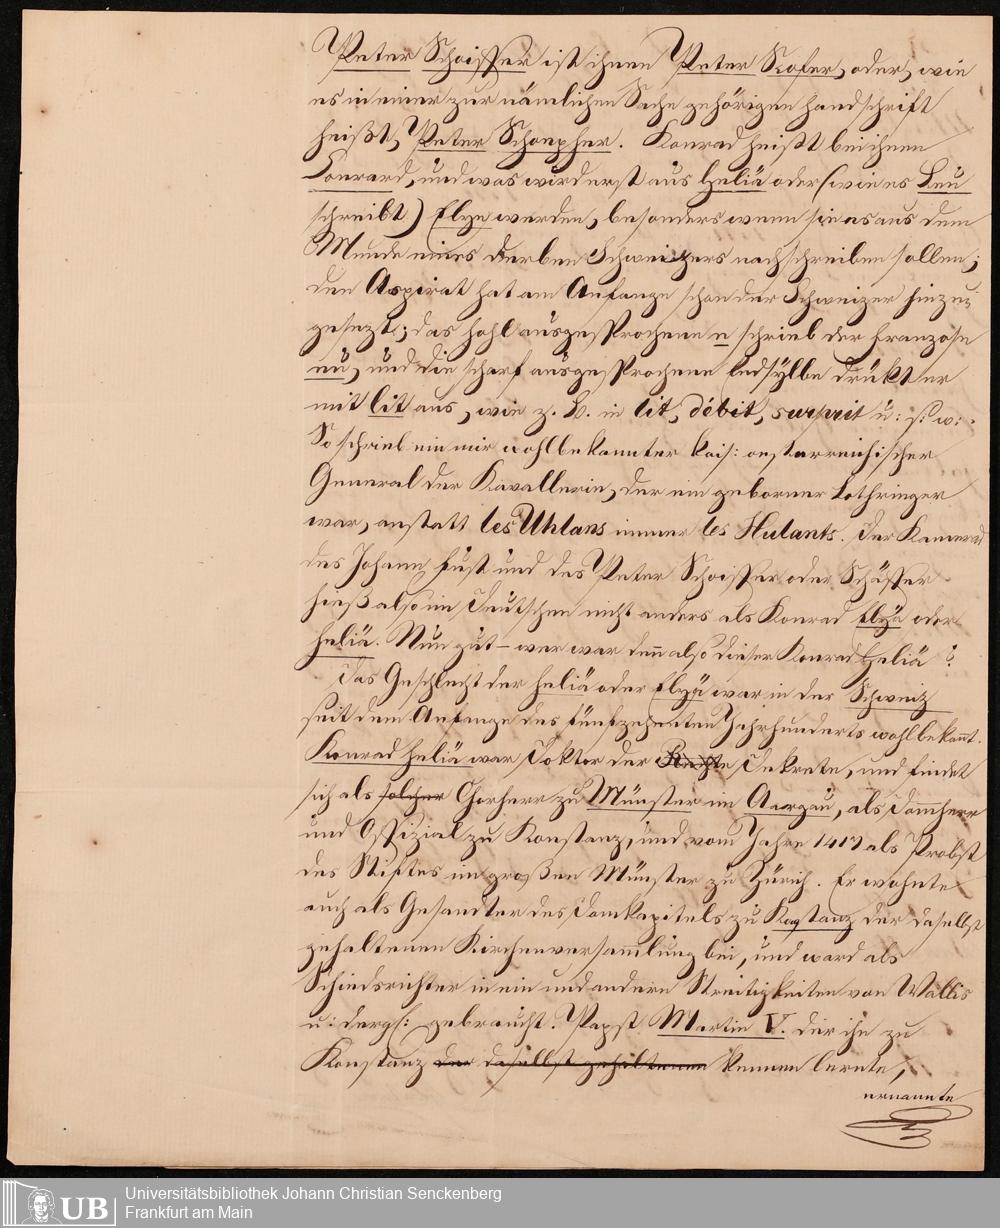 Peter Schoiffer ist ihnen Peter Kofer, oder, wie
es in einer zur nämlichen Sache gehörigen Handschrift
heißt, Peter Schoepher. Konrad heißt bei ihnen
Conrard, und was wird erst aus Heliä oder (wie es Leu
schreibt) Elye werden, besonders wenn sie es aus dem
Munde eines derben Schweizers nachschreiben sollen;
den Aspirat hat am Anfange schon der Schweizer hinzu
gesezt; das hohl ausgesprochene e schrieb der Franzose
eu, und die scharf ausgesprochene Endsylbe drükt er
mit lit aus, wie z. B. in lit, débit, surprit u: s: w:.
So schrieb ein mir wohlbekannter kais: oesterreichischer
General der Kavallerie, der ein geborner Lothringer
war, anstatt les Uhlans immer les Hulants. Der Kamerad
des Johann Fust und des Peter Schoiffer oder Schäffer
hieß also im Deutschen nicht anders als Konrad Elyä oder
Heliä. Nun gut – wer war denn also dieser Konrad Heliä?
Das Geschlecht der Heliä oder Elyä war in der Schweiz
seit dem Anfange des fünfzehenten Jahrhunderts wohl bekannt.
Konrad Heliä war Doktor der Rechte Dekrete, und findet
sich als solcher Chorherr zu Münster im Aargau, als Domherr
und Offizial zu Konstanz, und vom Jahre 1417 als Probst
des Stiftes im großen Münster zu Zürich. Er wohnte
auch als Gesandter des Domkapitels zu Konstanz der daselbst
gehaltenen Kirchenversammlung bei, und ward als
Schiedsrichter in ein und andern Streitigkeiten von Wallis
u: dergl: gebraucht. Papst Martin V. der ihn zu
Konstanz der daselbst gehaltenen kennen lernte,
ernannte
Universitätsbibliothek Johann Christian Senckenberg
Frankfurt am Main
UB